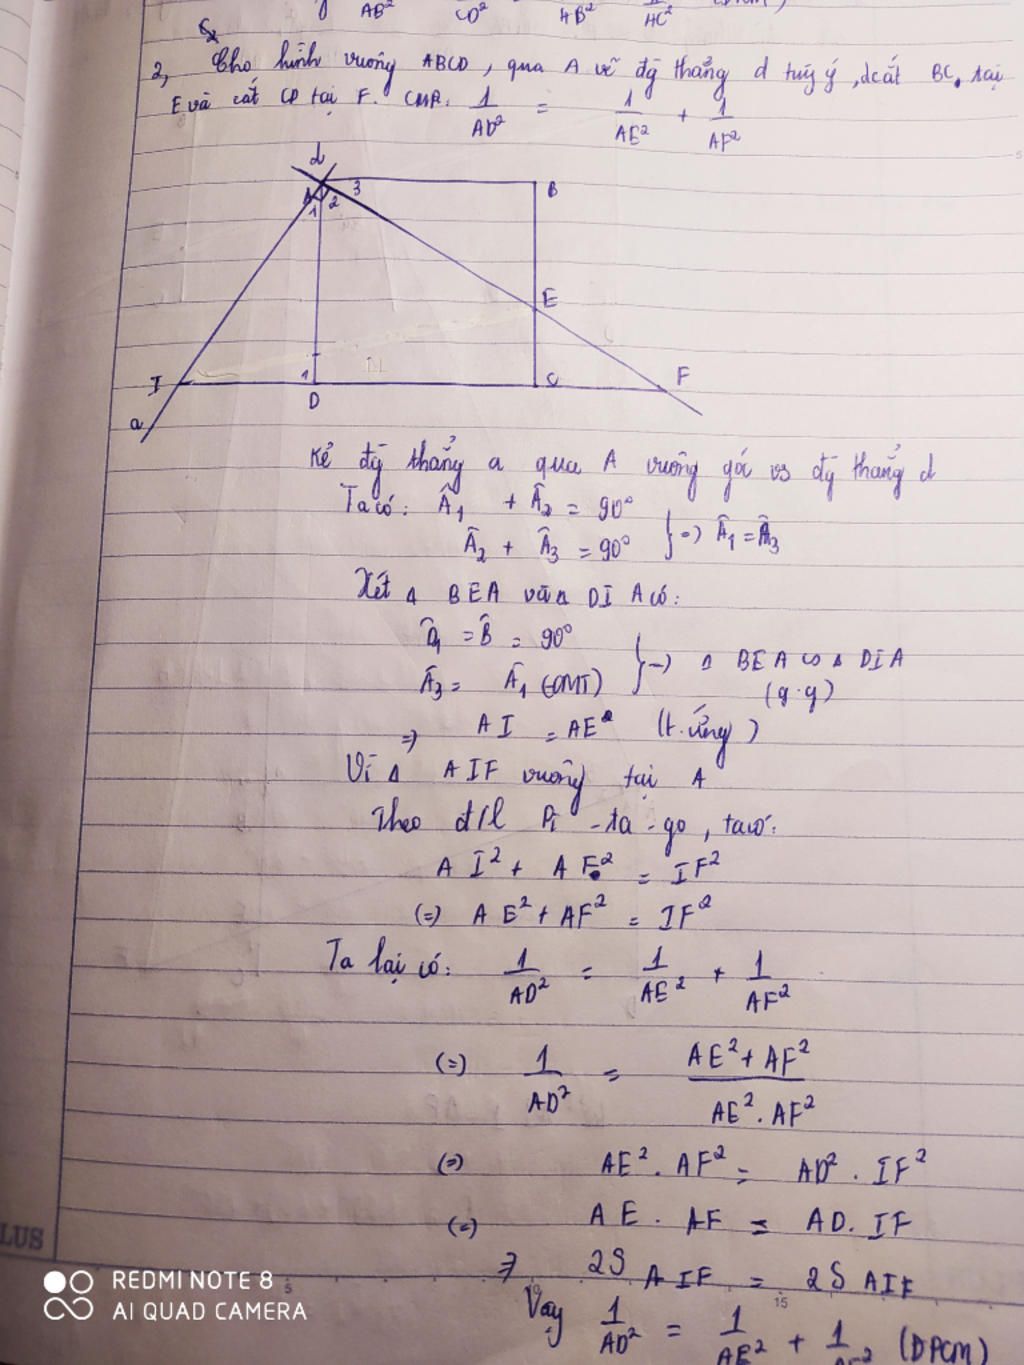 AB² CD² AB² AC²
2, Cho hình vuông ABCD, qua A vẽ đg thẳng d tuỳ ý, d cắt BC tại
E và cắt CD tại F. CMR: 1/AD² = 1/AE² + 1/AF²
d
A 3 B
1 2
E
I 1 C F
D
a
Kẻ đg thẳng a qua A vuông góc vs đg thẳng d
Ta có: Â₁ + Â₂ = 90°
Â₂ + Â₃ = 90° } => Â₁ = Â₃
Xét Δ BEA và Δ DIA có:
D̂₁ = B̂ = 90°
Â₃ = Â₁ (CMT) } => Δ BEA ∽ Δ DIA
(g.g)
=> AI = AE (t.ứng)
Vì Δ AIF vuông tại A
Theo đ/l Pi-ta-go, ta có:
AI² + AF² = IF²
(=) AE² + AF² = IF²
Ta lại có: 1/AD² = 1/AE² + 1/AF²
(=) 1/AD² = AE² + AF² / AE². AF²
(=) AE². AF² = AD². IF²
(=) AE. AF = AD. IF
=> 2S AIF = 2S AIF
Vậy 1/AD² = 1/AE² + 1/AF² (DPCM)
LUS
5 10 15
REDMI NOTE 8
AI QUAD CAMERA